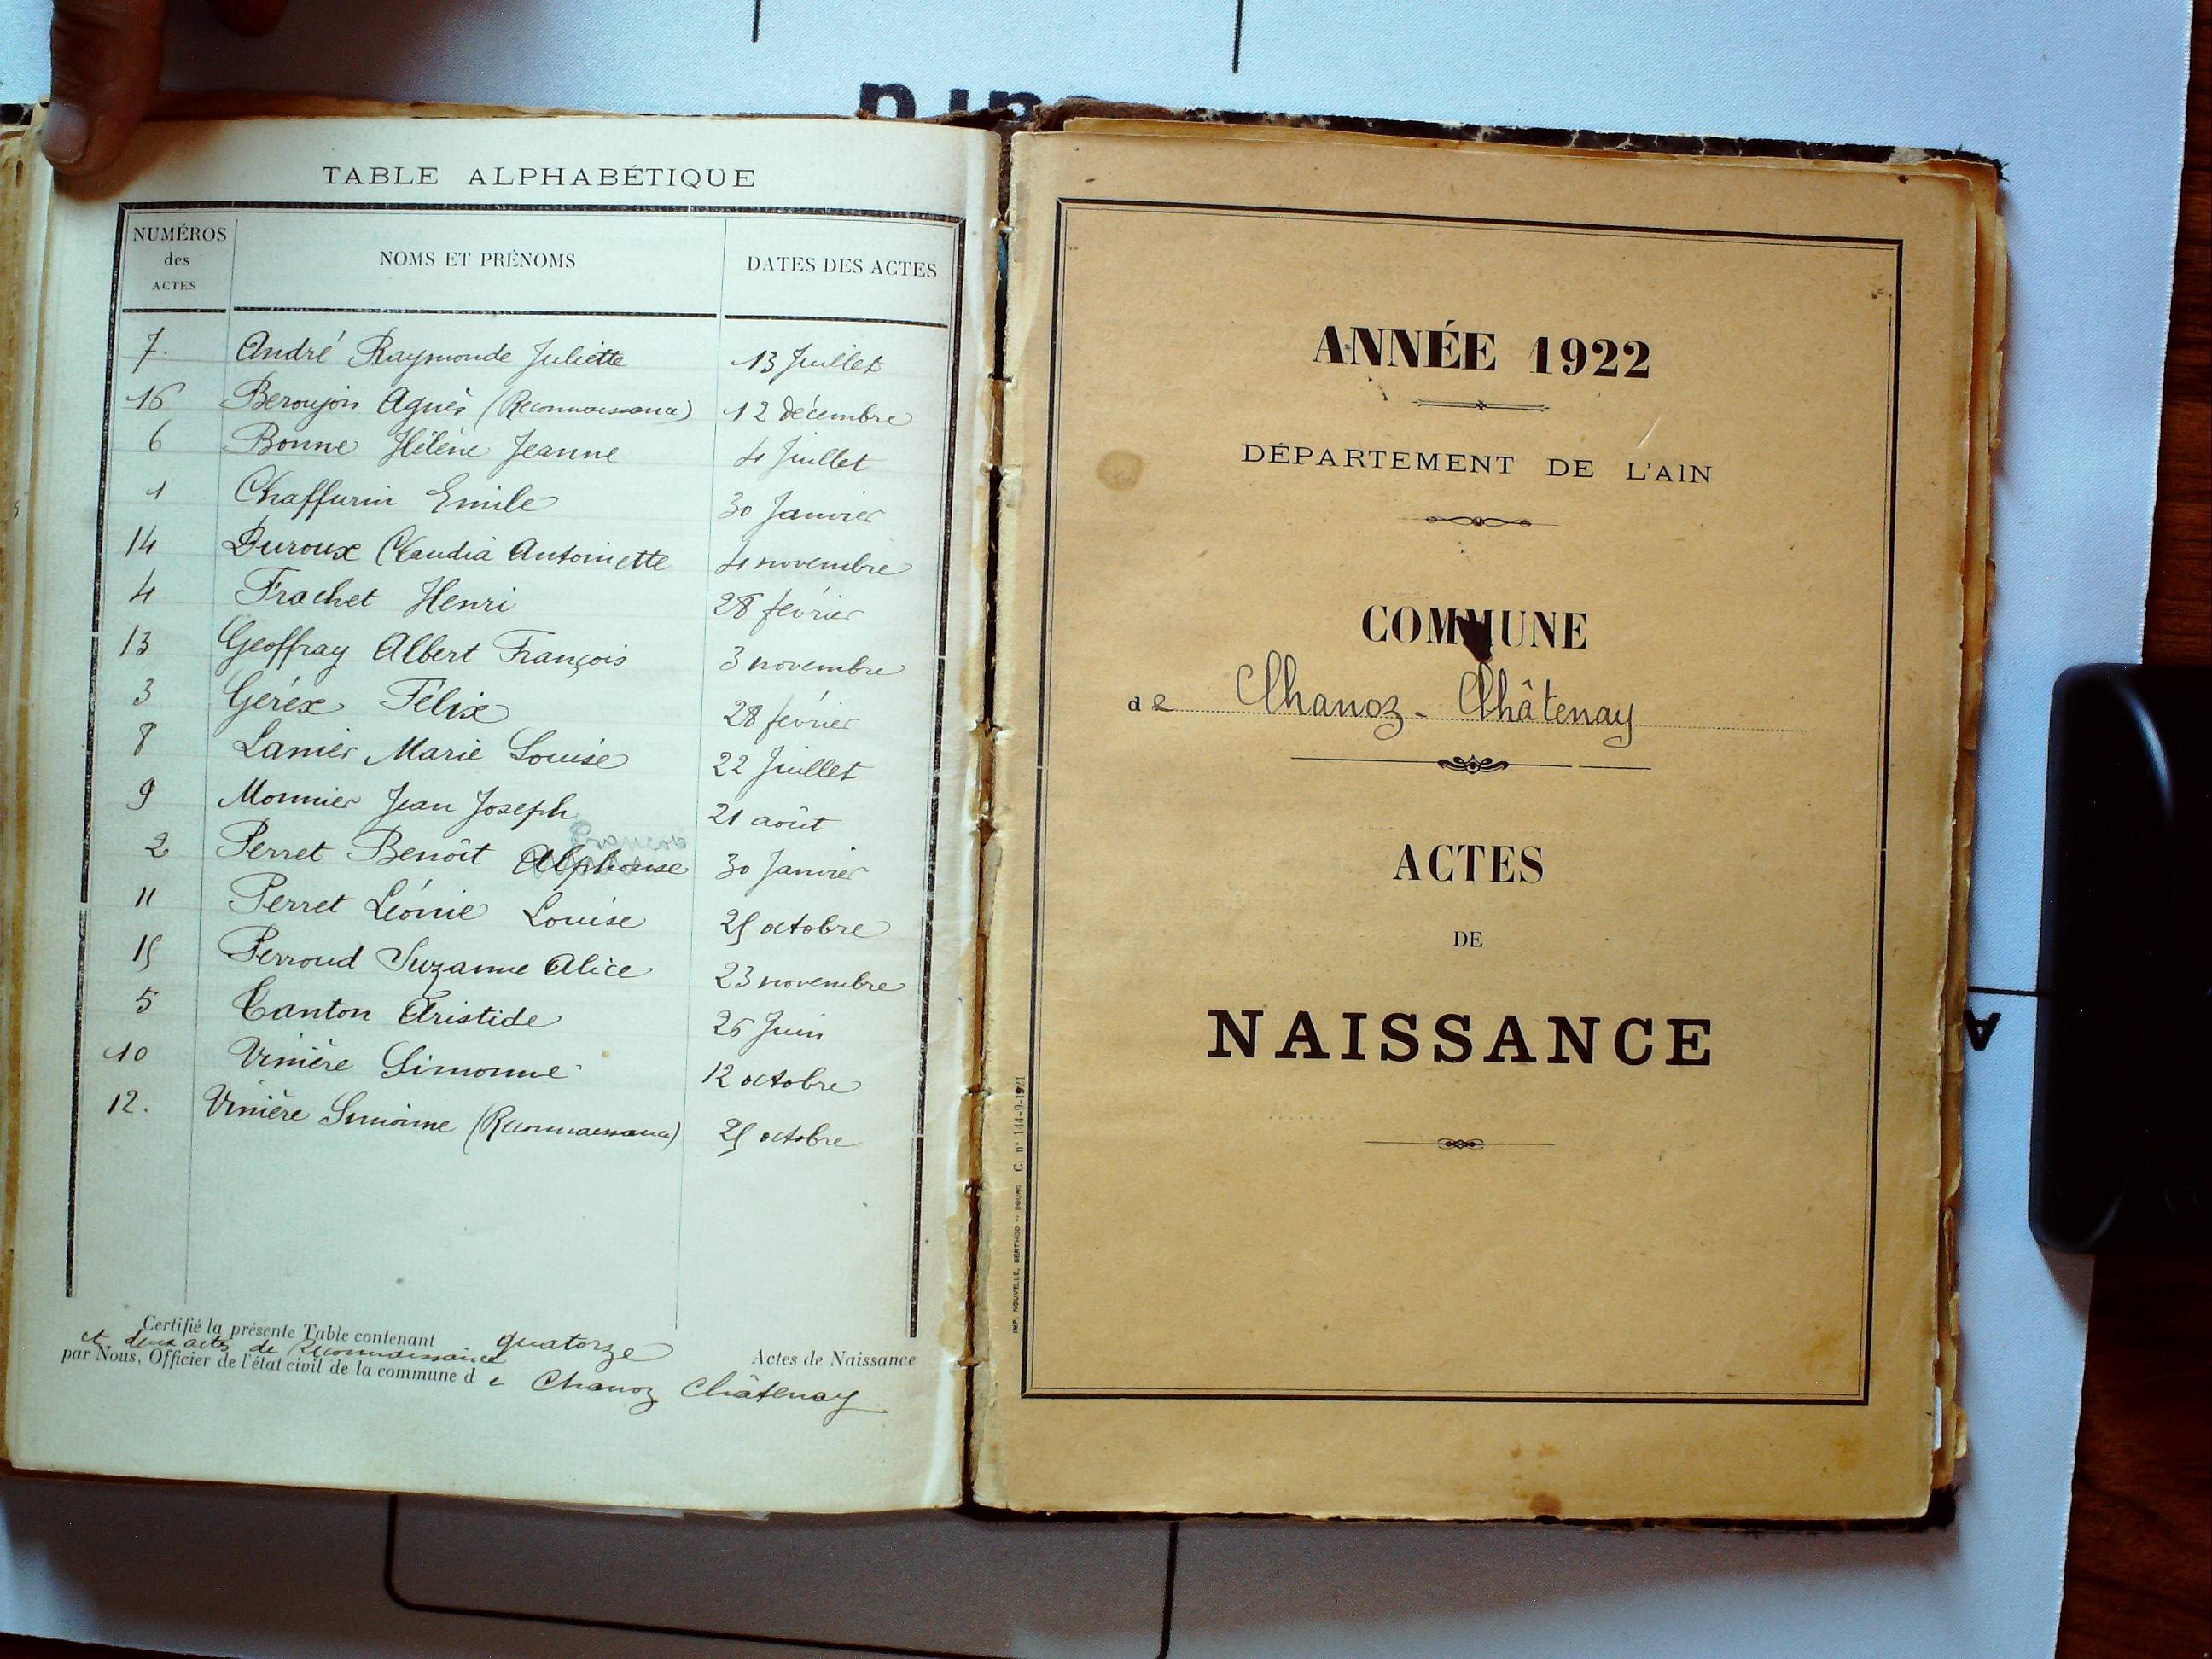 TABLE ALPHABÉTIQUE
NUMÉROS des ACTES NOMS ET PRÉNOMS DATES DES ACTES
7. André Raymonde Juliette 13 Juillet
16 Beroujon Agnès (Reconnaissance) 12 décembre
6 Bonne Hélène Jeanne 4 Juillet
1 Chaffurin Emile 30 Janvier
14 Duroux Claudia Antoinette 4 novembre
4 Frachet Henri 28 février
13 Geoffray Albert François 3 novembre
3 Geréx Félix 28 février
8 Lanier Marie Louise 22 Juillet
9 Monnier Jean Joseph 21 août
2 Perret Benoît Alphonse 30 Janvier
11 Perret Léonie Louise 25 octobre
15 Perroud Suzanne Alice 23 novembre
5 Tanton Aristide 26 Juin
10 Vinière Simonne 12 octobre
12. Vinière Simonne (Reconnaissance) 25 octobre
Certifié la présente Table contenant quatorze Actes de Naissance
et deux actes de Reconnaissance
par Nous, Officier de l'état civil de la commune de Chanoz Châtenay
ANNÉE 1922
DÉPARTEMENT DE L'AIN
COMMUNE
de Chanoz-Châtenay
ACTES
DE
NAISSANCE
IMP. NOUVELLE, BERTHOD -- BOURG C. n° 144-9-1921